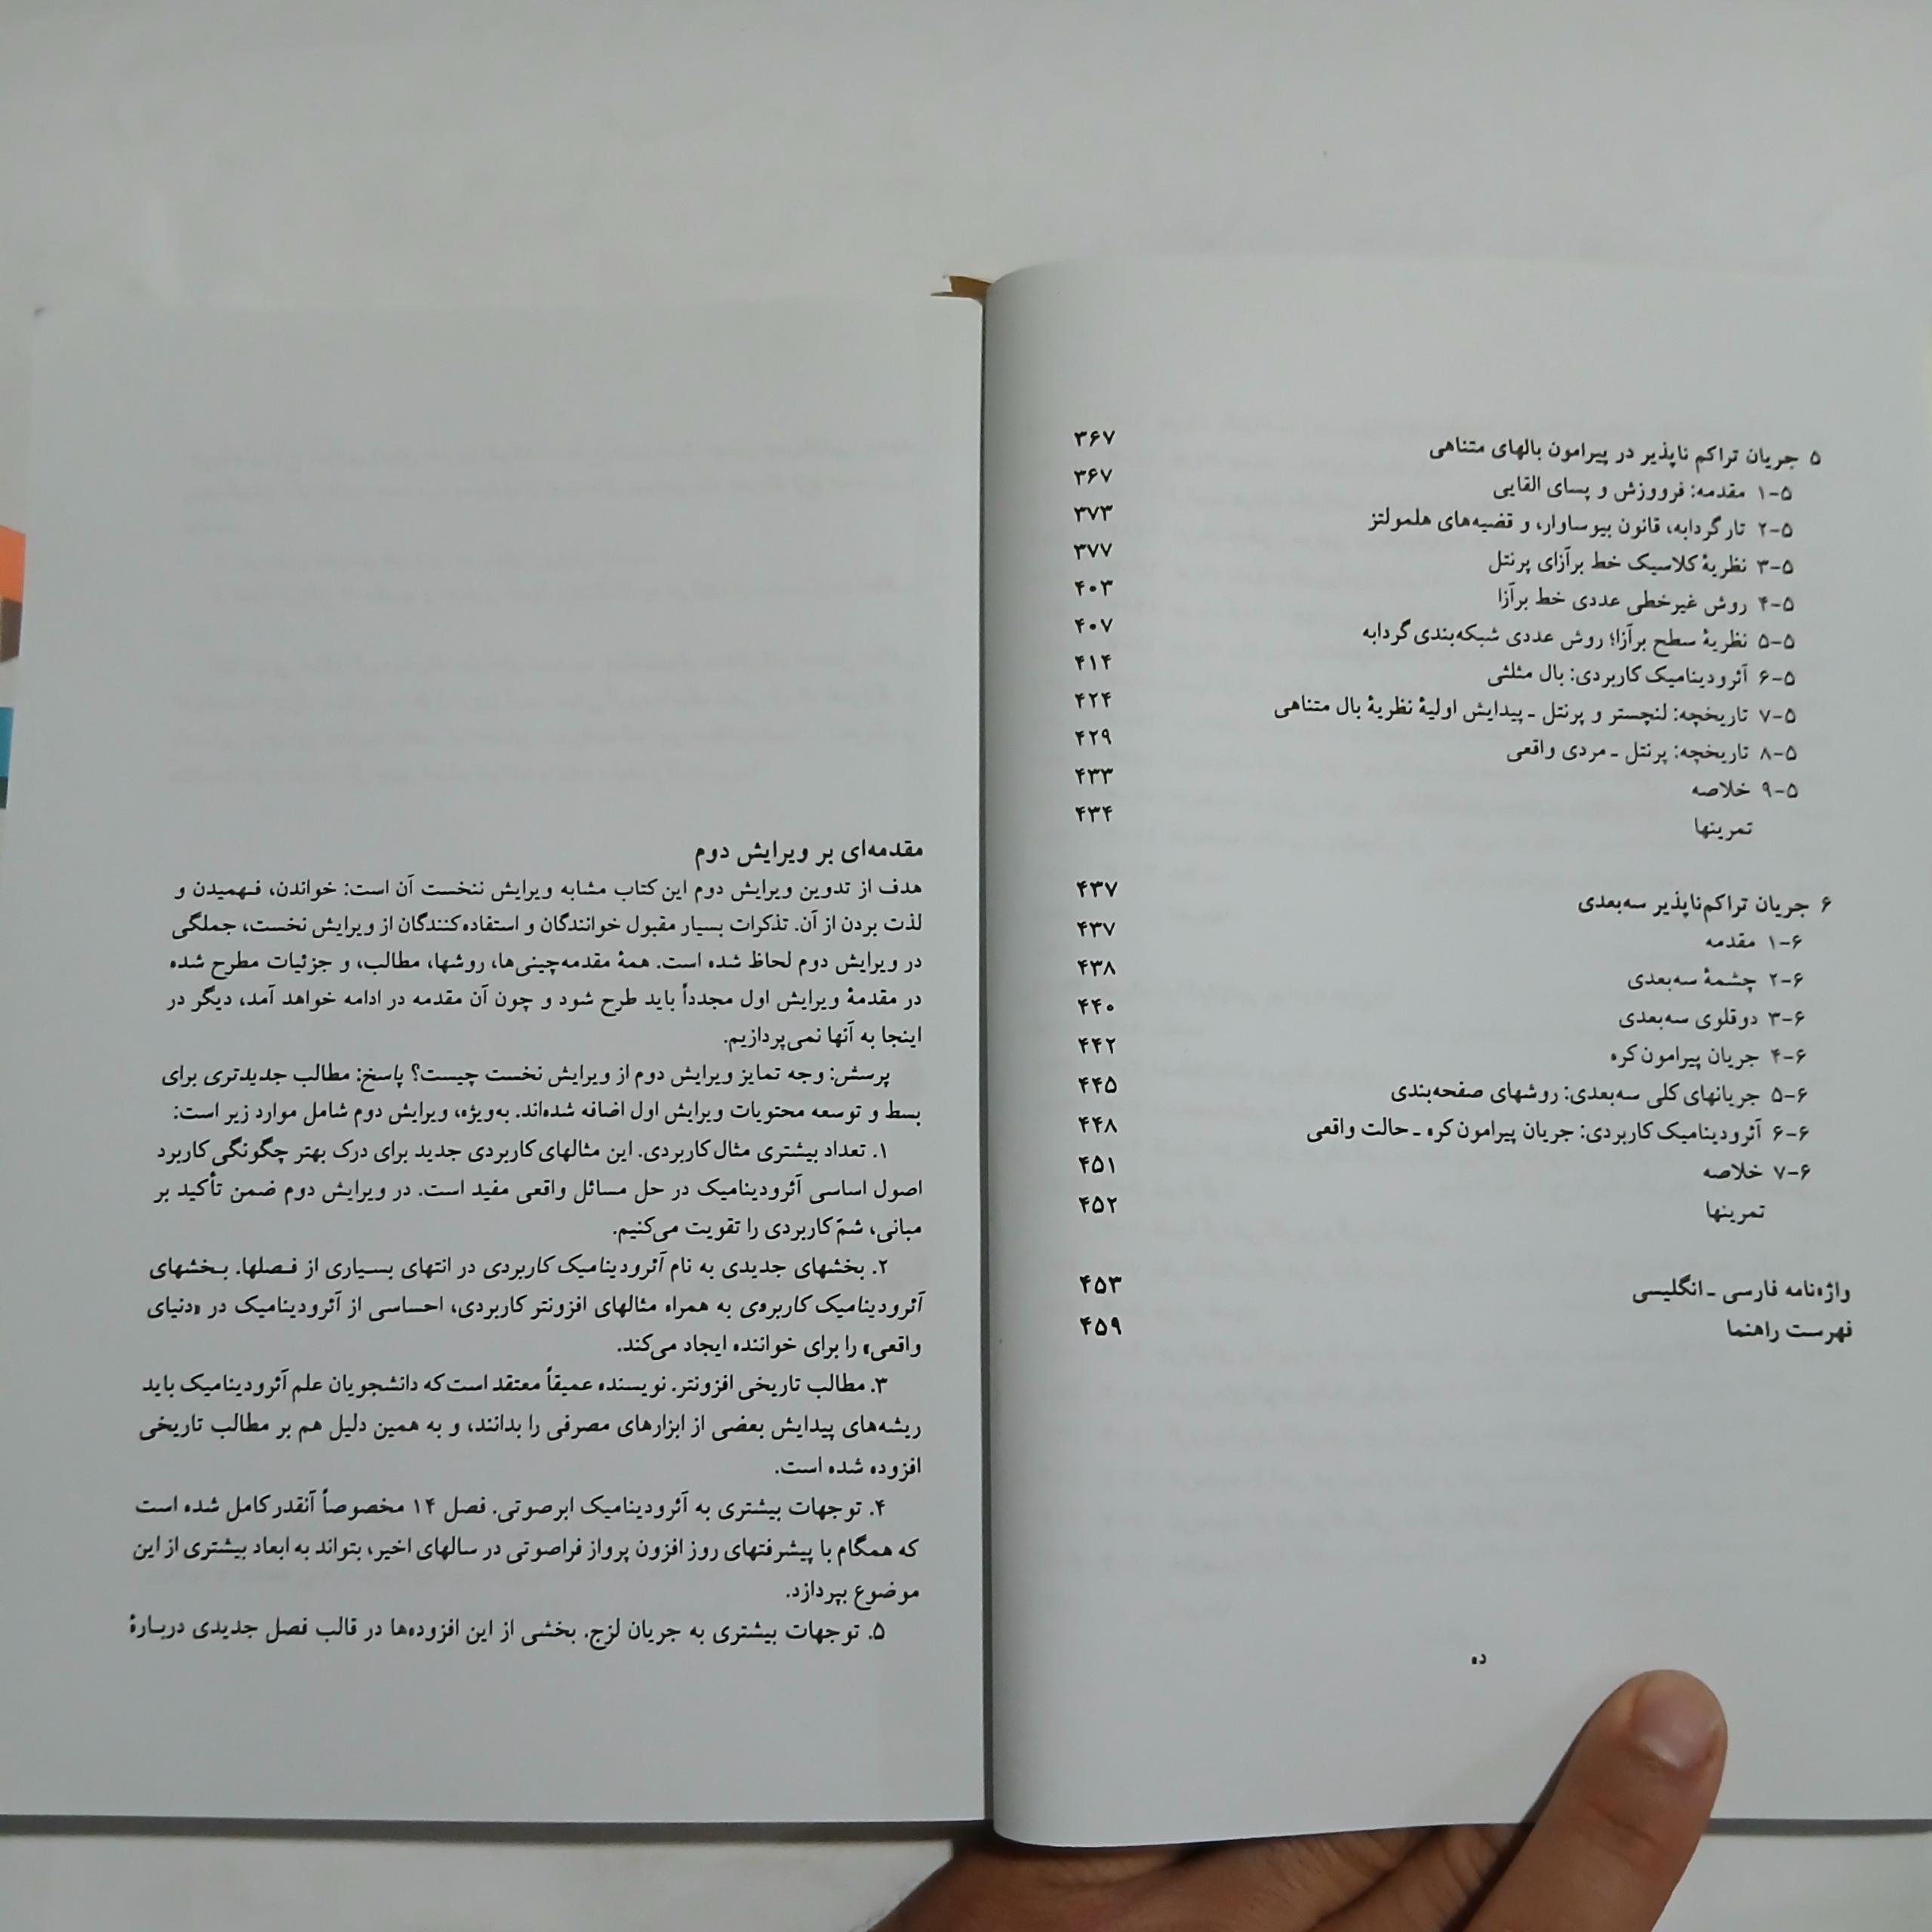 ۵ جریان تراکم ناپذیر در پیرامون بالهای متناهی ۳۶۷
۵-۱ مقدمه: فروورزش و پسای القایی ۳۶۷
۵-۲ تارگردابه، قانون بیوساوار، و قضیه‌های هلمولتز ۳۷۳
۵-۳ نظریهٔ کلاسیک خط برآزای پرنتل ۳۷۷
۵-۴ روش غیرخطی عددی خط برآزا ۴۰۳
۵-۵ نظریهٔ سطح برآزا؛ روش عددی شبکه‌بندی گردابه ۴۰۷
۵-۶ آئرودینامیک کاربردی: بال مثلثی ۴۱۴
۵-۷ تاریخچه: لنچستر و پرنتل ـ پیدایش اولیهٔ نظریهٔ بال متناهی ۴۲۴
۵-۸ تاریخچه: پرنتل ـ مردی واقعی ۴۲۹
۵-۹ خلاصه ۴۳۳
تمرینها ۴۳۴
۶ جریان تراکم‌ناپذیر سه‌بعدی ۴۳۷
۶-۱ مقدمه ۴۳۷
۶-۲ چشمهٔ سه‌بعدی ۴۳۸
۶-۳ دوقلوی سه‌بعدی ۴۴۰
۶-۴ جریان پیرامون کره ۴۴۲
۶-۵ جریانهای کلی سه‌بعدی: روشهای صفحه‌بندی ۴۴۵
۶-۶ آئرودینامیک کاربردی: جریان پیرامون کره ـ حالت واقعی ۴۴۸
۶-۷ خلاصه ۴۵۱
تمرینها ۴۵۲
واژه‌نامه فارسی ـ انگلیسی ۴۵۳
فهرست راهنما ۴۵۹
ده
مقدمه‌ای بر ویرایش دوم
هدف از تدوین ویرایش دوم این کتاب مشابه ویرایش ننخست آن است: خواندن، فهمیدن و
لذت بردن از آن. تذکرات بسیار مقبول خوانندگان و استفاده‌کنندگان از ویرایش نخست، جملگی
در ویرایش دوم لحاظ شده است. همهٔ مقدمه‌چینی‌ها، روشها، مطالب، و جزئیات مطرح شده
در مقدمهٔ ویرایش اول مجدداً باید طرح شود و چون آن مقدمه در ادامه خواهد آمد، دیگر در
اینجا به آنها نمی‌پردازیم.
پرسش: وجه تمایز ویرایش دوم از ویرایش نخست چیست؟ پاسخ: مطالب جدیدتری برای
بسط و توسعه محتویات ویرایش اول اضافه شده‌اند. به‌ویژه، ویرایش دوم شامل موارد زیر است:
۱. تعداد بیشتری مثال کاربردی. این مثالهای کاربردی جدید برای درک بهتر چگونگی کاربرد
اصول اساسی آئرودینامیک در حل مسائل واقعی مفید است. در ویرایش دوم ضمن تأکید بر
مبانی، شمّ کاربردی را تقویت می‌کنیم.
۲. بخشهای جدیدی به نام آئرودینامیک کاربردی در انتهای بسیاری از فصلها. بخشهای
آئرودینامیک کاربردی به همراه مثالهای افزونتر کاربردی، احساسی از آئرودینامیک در «دنیای
واقعی» را برای خواننده ایجاد می‌کند.
۳. مطالب تاریخی افزونتر. نویسنده عمیقاً معتقد است که دانشجویان علم آئرودینامیک باید
ریشه‌های پیدایش بعضی از ابزارهای مصرفی را بدانند، و به همین دلیل هم بر مطالب تاریخی
افزوده شده است.
۴. توجهات بیشتری به آئرودینامیک ابرصوتی. فصل ۱۴ مخصوصاً آنقدر کامل شده است
که همگام با پیشرفتهای روز افزون پرواز فراصوتی در سالهای اخیر، بتواند به ابعاد بیشتری از این
موضوع بپردازد.
۵. توجهات بیشتری به جریان لزج. بخشی از این افزوده‌ها در قالب فصل جدیدی دربارهٔ